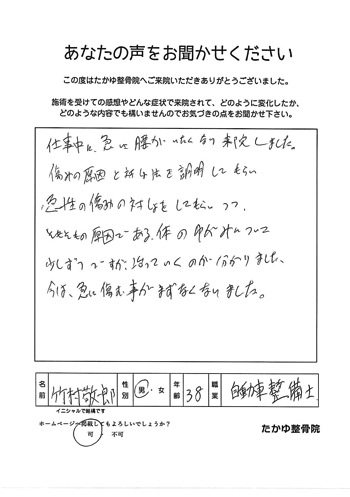 あなたの声をお聞かせください
この度はたかゆ整骨院へご来院いただきありがとうございました。
施術を受けての感想やどんな症状で来院されて、どのように変化したか、
どのような内容でも構いませんのでお気づきの点をお聞かせ下さい。
仕事中に、急に腰がいたくなり来院しました。
傷みの原因と対処法を説明してもらい
急性の傷みの対処をしてもらいつつ、
そもそもの原因である、体のゆがみについて
少しずつですが、治っていくのが分かりました、
今は、急に傷む事がまずなくないました。
名前 竹村敬郎 性別 男・女 年齢 38 職業 自動車整備士
イニシャルで結構です
ホームページへ掲載してもよろしいでしょうか？
可 ・ 不可
たかゆ整骨院